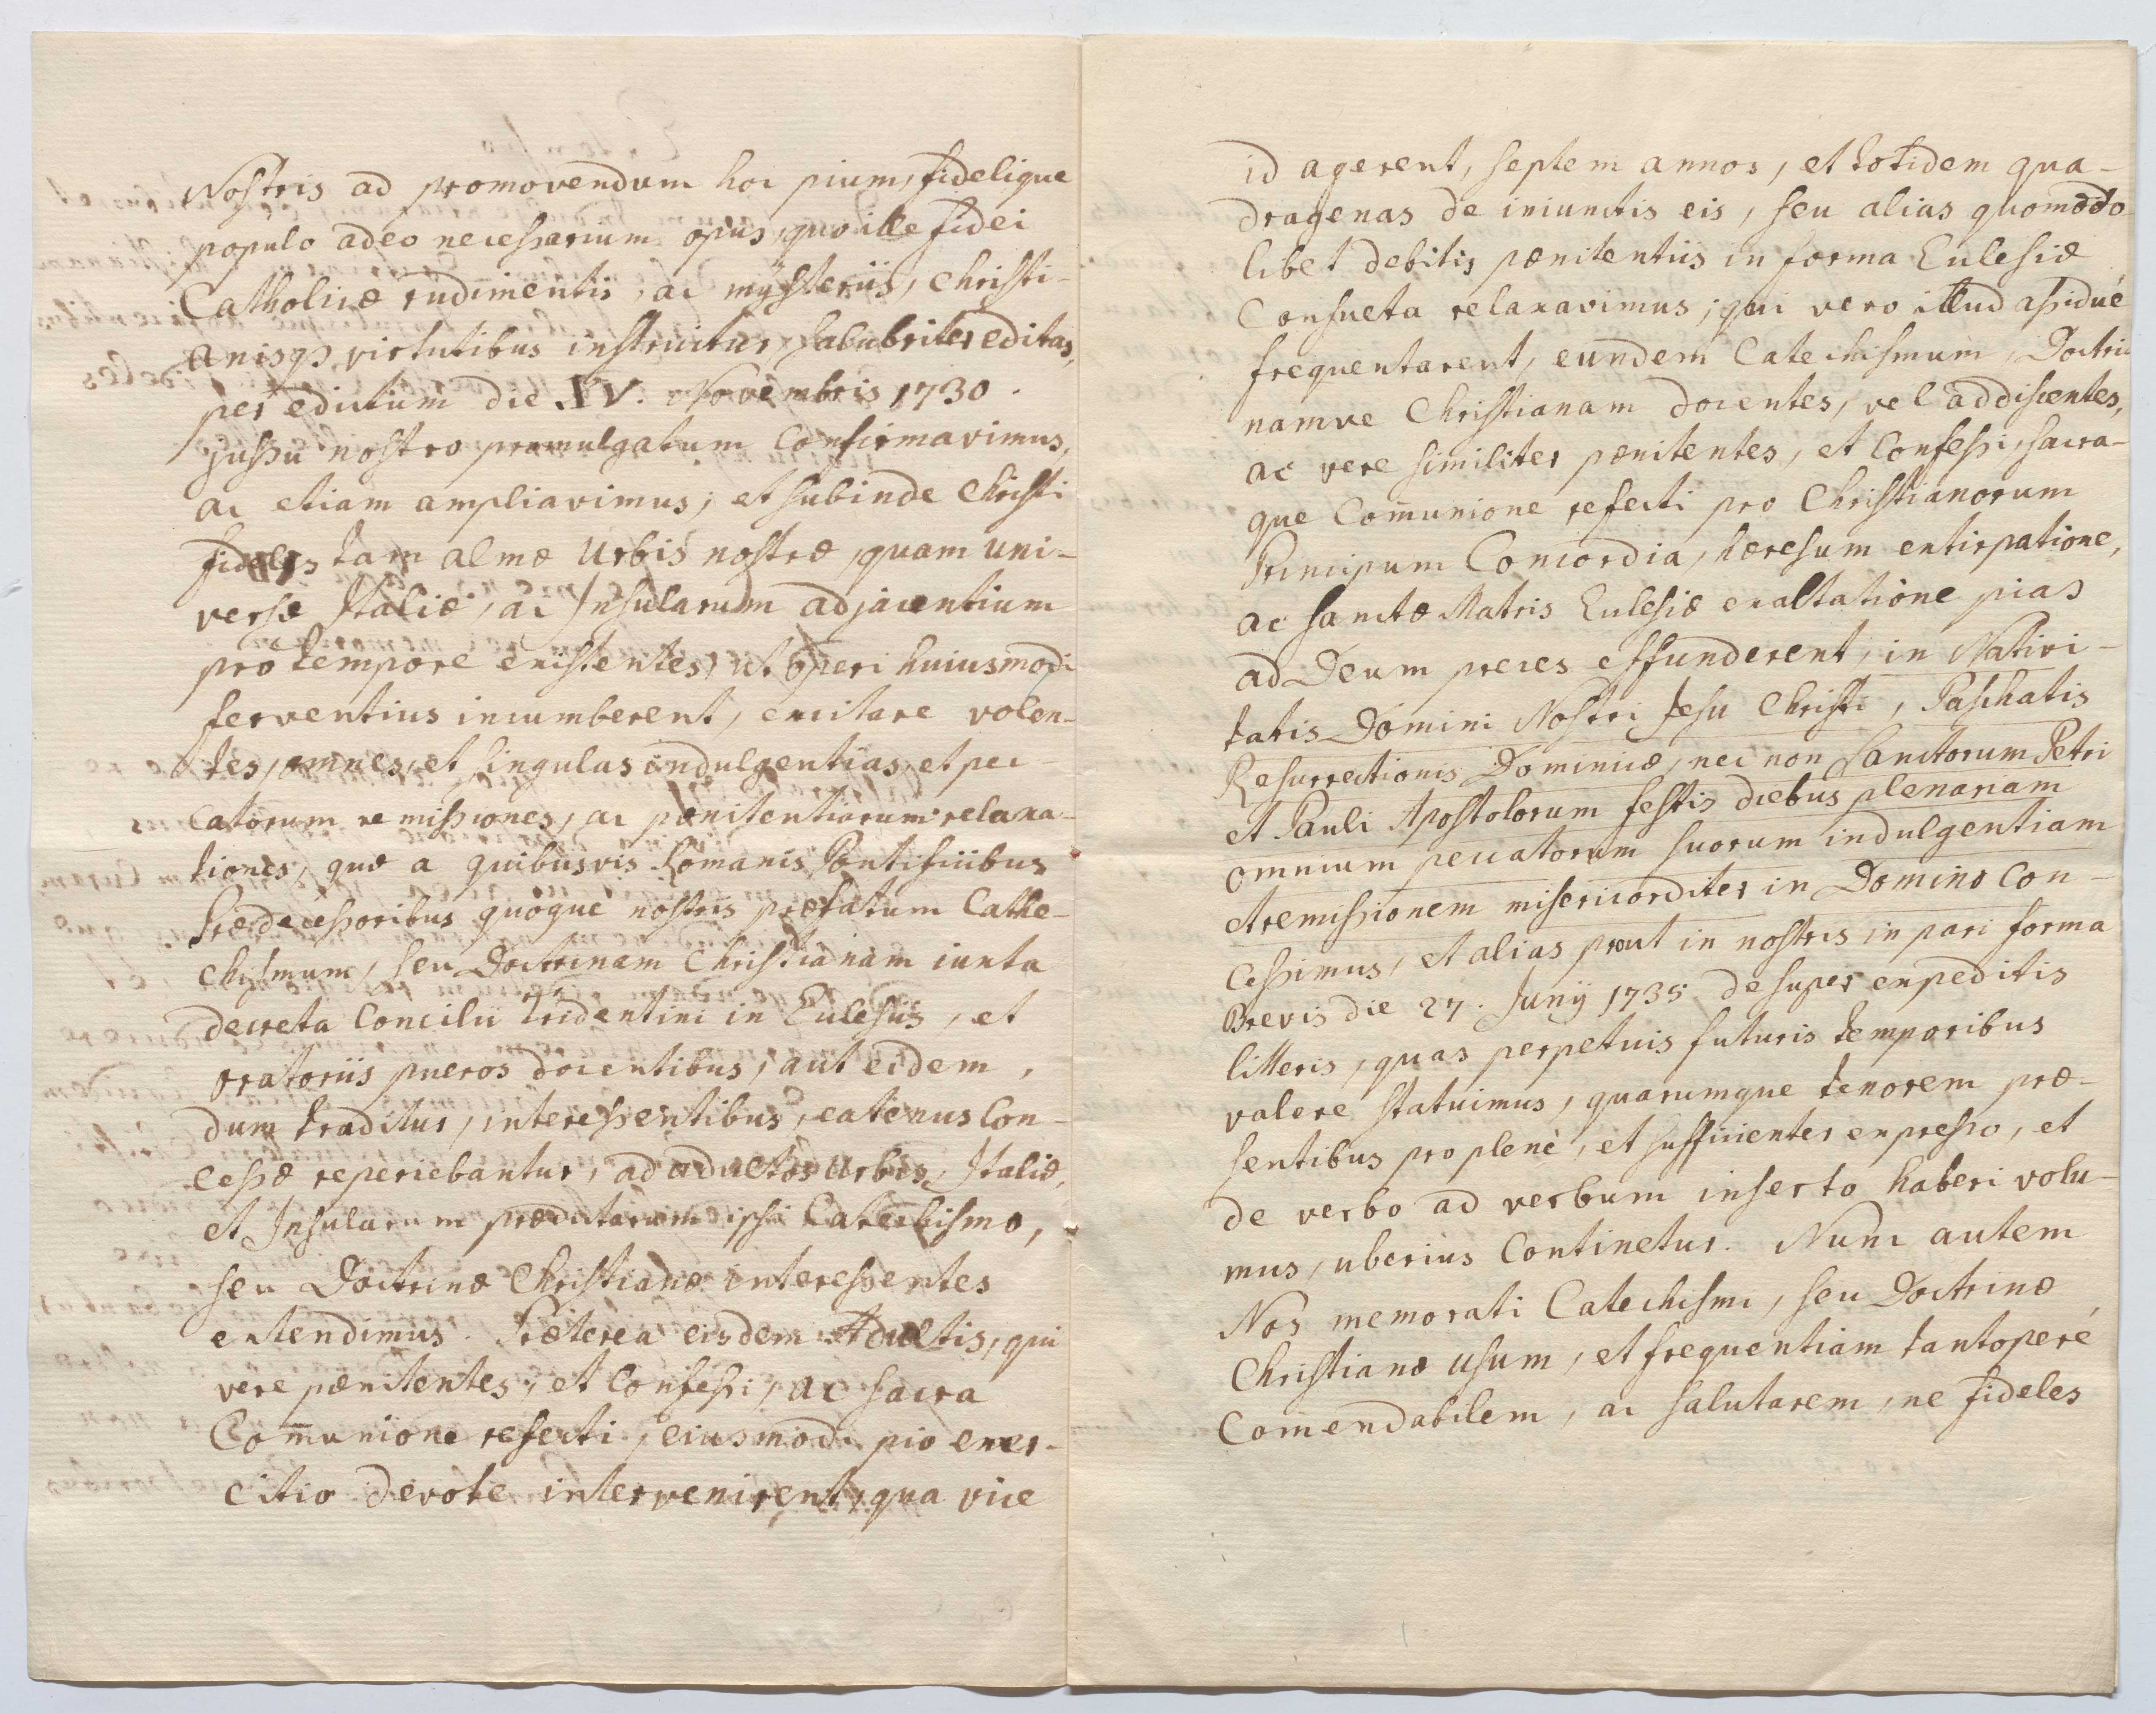 Nostris ad promovendum hoc pium, fidelique
populo adeò necessarium opus, quo ille fidei
Catholicæ rudimentis, ac mÿsteriis, Christi-
anisq3 virtutibus instruitur, salubriter editas,
per edictum die XV. Novembris 1730.
jussu nostro promulgatum confirmavimus,
ac etiam ampliavimus; et subinde Christi
fideles tam almæ Urbis nostræ, quam uni-
versæ Italiæ, ac Insularum adjacentium
pro tempore existentes, ut operi huiusmodi
ferventius incumberent, excitare volen-
tes, omnes, et singulas indulgentias, et pec-
catorum remissiones, ac pænitentiarum relaxa-
tiones, quæ a quibusvis Romanis Pontificibus
Prædecessoribus quoque nostris præfatum Cathe-
chismum, seu Doctrinam Christianam iuxta
decreta Concilii Tridentini in Ecclesiis, et
oratoriis pueros docentibus, aut eidem,
dum traditur, interessentibus, eatenus con-
cessæ reperiebantur, ad adultos Urbis, Italiæ,
et Insularum prædictarum ipsi Catechismo,
seu Doctrinæ Christianæ interessentes
extendimus. Præterea eisdem Adultis, qui
vere pænitentes, et confessi, ac sacra
Com̄unione refecti, eiusmodi pio exer-
citio devote intervenirent, qua vice
id agerent, septem annos, et totidem qua-
dragenas de iniunctis eis, seu alias quomodo-
libet debitis pænitentiis in forma Ecclesiæ
Consueta relaxavimus; qui vero illud assiduè
frequentarent, eundem Catechismum, Doctri
namve Christianam docentes, vel addiscentes,
ac vere similiter pænitentes, et confessi, sacra-
que Com̄unione refecti pro Christianorum
Principum Concordia, hæresum extirpatione,
ac sanctæ Matris Ecclesiæ exaltatione pias
ad Deum preces effunderent, in Nativi-
tatis Domini Nostri Jesu Christi, Paschatis
Resurrectionis Dominicæ, nec non Sanctorum Petri
et Pauli Apostolorum festis diebus plenariam
omnium peccatorum suorum indulgentiam
et remissionem misericorditer in Domino con-
cessimus, et alias prout in nostris in pari forma
Brevis die 27. Junÿ 1735 desuper expeditis
litteris, quas perpetuis futuris temporibus
valere statuimus, quarumque tenorem præ-
sentibus pro plenè, et sufficienter expresso, et
de verbo ad verbum inserto haberi volu-
mus, uberius continetur. Nunc autem
Nos memorati Catechismi, seu Doctrinæ
Christianæ usum, et frequentiam tantoperè
Comendabilem, ac salutarem, ne fideles